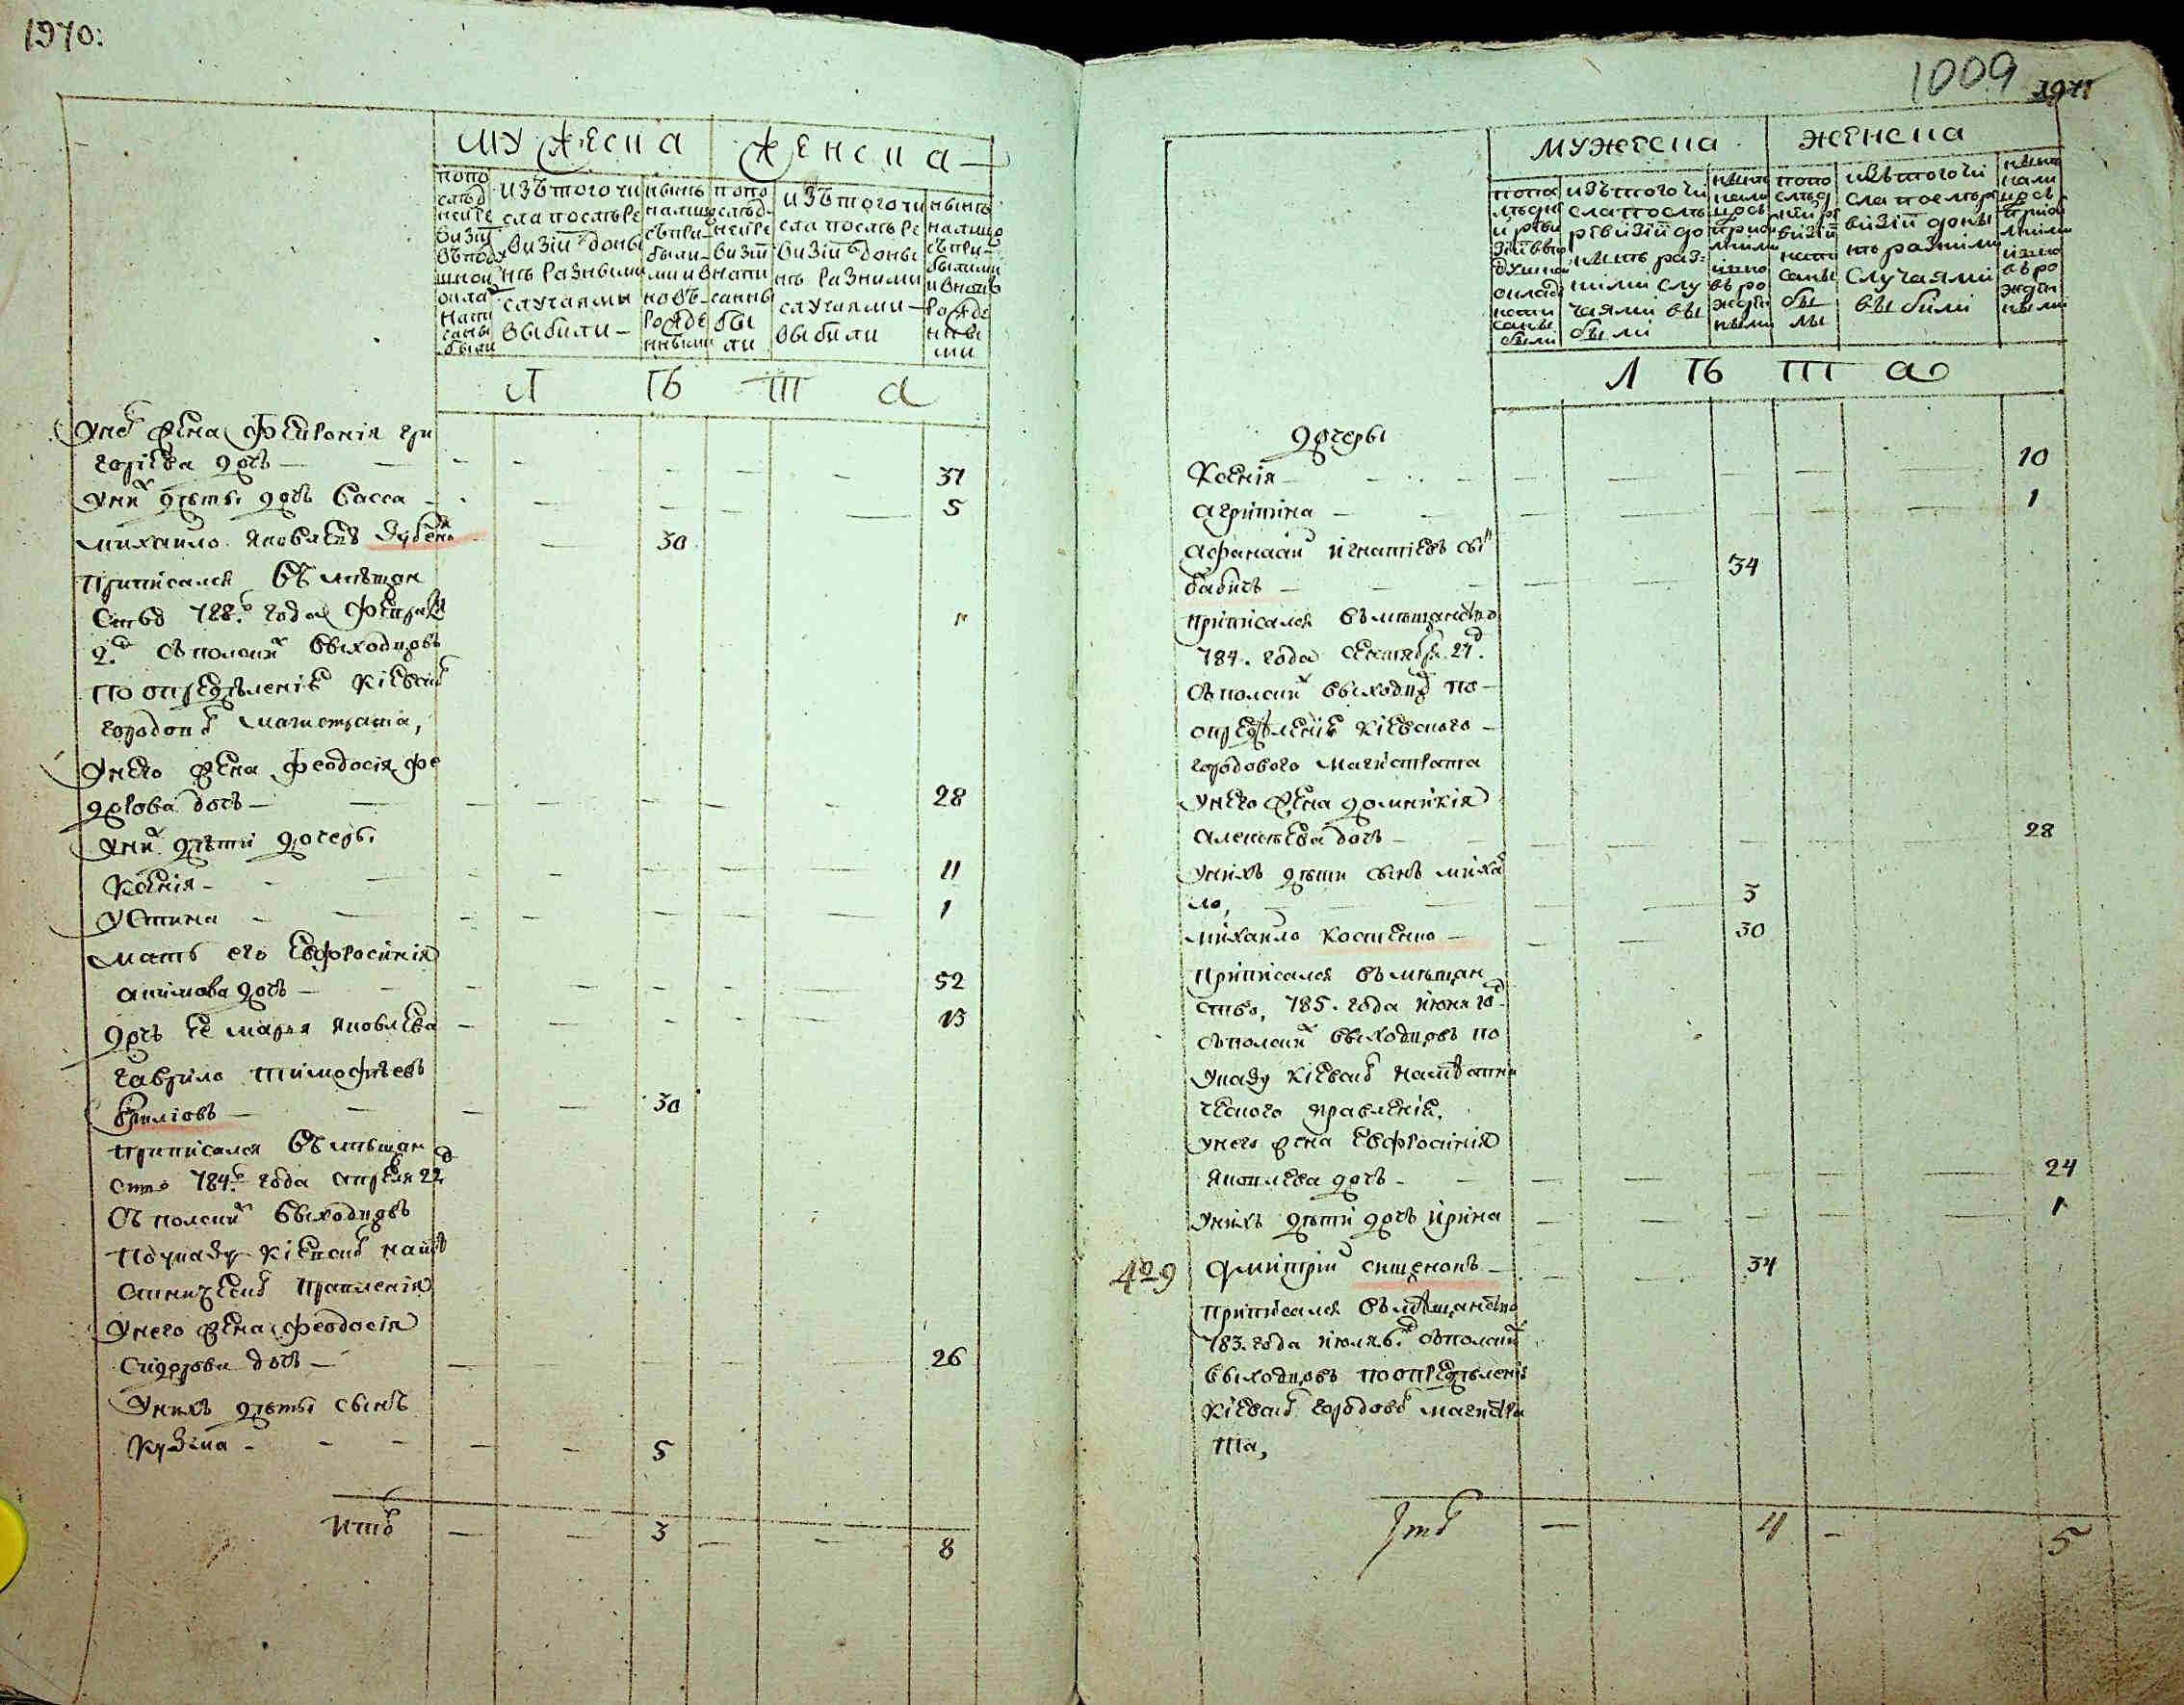 1970:
мужеска
женска
попо
слѣд
ней ре
визіи
въ поду
шной
оклад
напи
саны
были
изъ того чи
сла послѣ ре
визіи до ны
нѣ разными
случаями
выбыли
нынѣ
на лицо
съ при
были
ми и
новъ
рожде
нными
попо
слѣд
ней ре
визіи
напи
санны
бы
ли
изъ того чи
сла послѣ ре
визіи до ны
нѣ разными
случаями
выбыли
нынѣ
на лицо
съ при
былыми
и вновь
рожде
нны
ми
Л Ѣ Т А
У не жена Февронія гри
горіева дочь — 31
У них дѣты дочь Васса — 5
Михаило Яковлевъ Дубенко 30
приписался въ мѣщан
ство 788. года февраля
2. съ полских выходцовъ
по опредѣленію Кіевског
городового магистрата,
У него жена Феодосія Фе
дорова дочь — 28
У них дѣти дочеры
Ксенія — 11
Устина — 1
мать его Евфросинія
Акимова дочь — 52
дочь ее Марья Яковлева 13
Гаврило Тимофѣевъ
Криліовъ — 30
приписался въ мѣщан
ство 784. года апреля 22
съ полских выходцовъ
по указу Кіевског намѣ
стническог правленія
У него жена Феодосія
Сидорова дочь — 26
У нихъ дѣты сынъ
Кузма — 5
Итого — 3 — 8
1009
1971
мужеска
женска
попо
слѣдне
й реви
зіи въ по
душном
окладѣ
напи
саны
были
изъ того чи
сла послѣ
ревизіи до
нынѣ раз
ными слу
чаями вы
были
нынѣ
нали
цо съ
прибы
лыми
и вно
въ ро
жден
ными
попо
слѣд
ней ре
визіи
напи
саны
бы
лы
изъ того чи
сла послѣ ре
визіи до ны
нѣ разными
случаями
выбыли
нынѣ
нали
цо съ
прибы
лыми
и вно
въ ро
жден
ными
Л Ѣ Т А
Дочеры
Ксенія — 10
Агрипина — 1
Афанасий Игнатіевъ сын
Бабичь — 34
приписался въ мѣщанство
784. года сентября 27.
съ полских выходцов по
опредѣленію Кіевского
городового магистрата
У него жена Домникія
Алексѣева дочь — 28
У нихъ дѣти сынъ Миха
ло, 3
Михаило Костенко — 30
приписался въ мѣщан
ство, 785. года июня 10
съ полских выходцовъ по
указу Кіевског намѣстни
ческого правленія,
У него жена Евфросинія
Яковлева дочь — 24
У нихъ дѣти дочь Ирина 1
429 Дмитрий — 34
приписался въ мѣщанство
783. года июля 6. съ полских
выходцовъ по опредѣленію
Кіевског городовог магистра
та,
Итог — 4 — 5